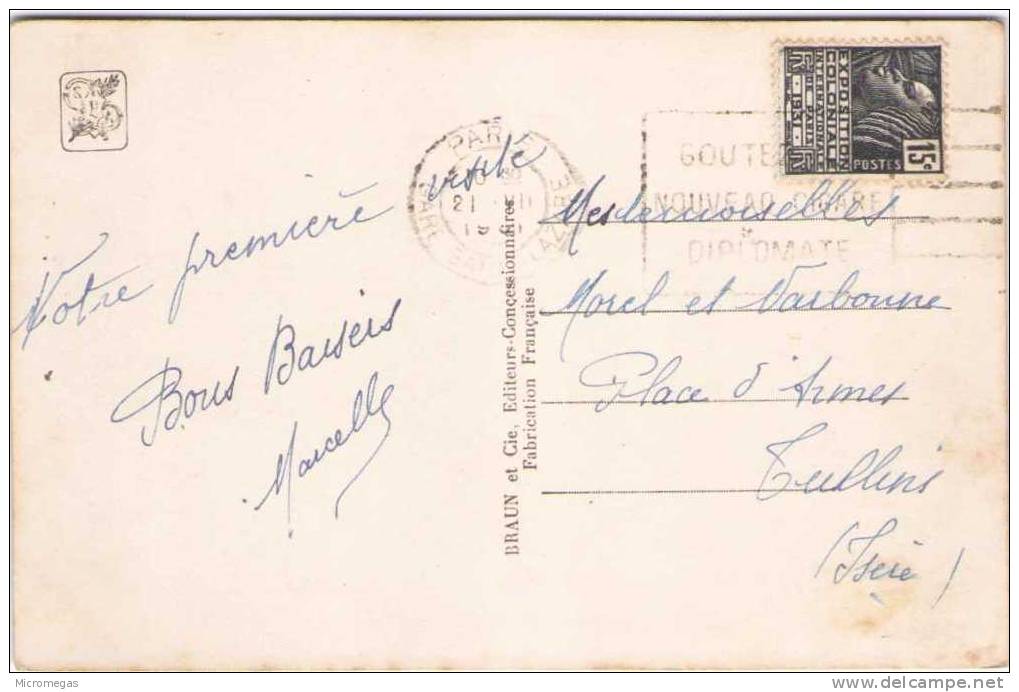 Votre première visite
Bons Baisers
Marcelle
BRAUN et Cie, Editeurs-Concessionnaires
Fabrication Française
PARIS
GARE
21
EXPOSITION
COLONIALE
INTERNATIONALE
PARIS 1931
POSTES
15c
GOUTEZ
NOUVEAU CIGARE
DIPLOMATE
Mesdemoiselles
Morel et Narbonne
Place d'Armes
Tullins
(Isère)
Micromegas
delcampe.net